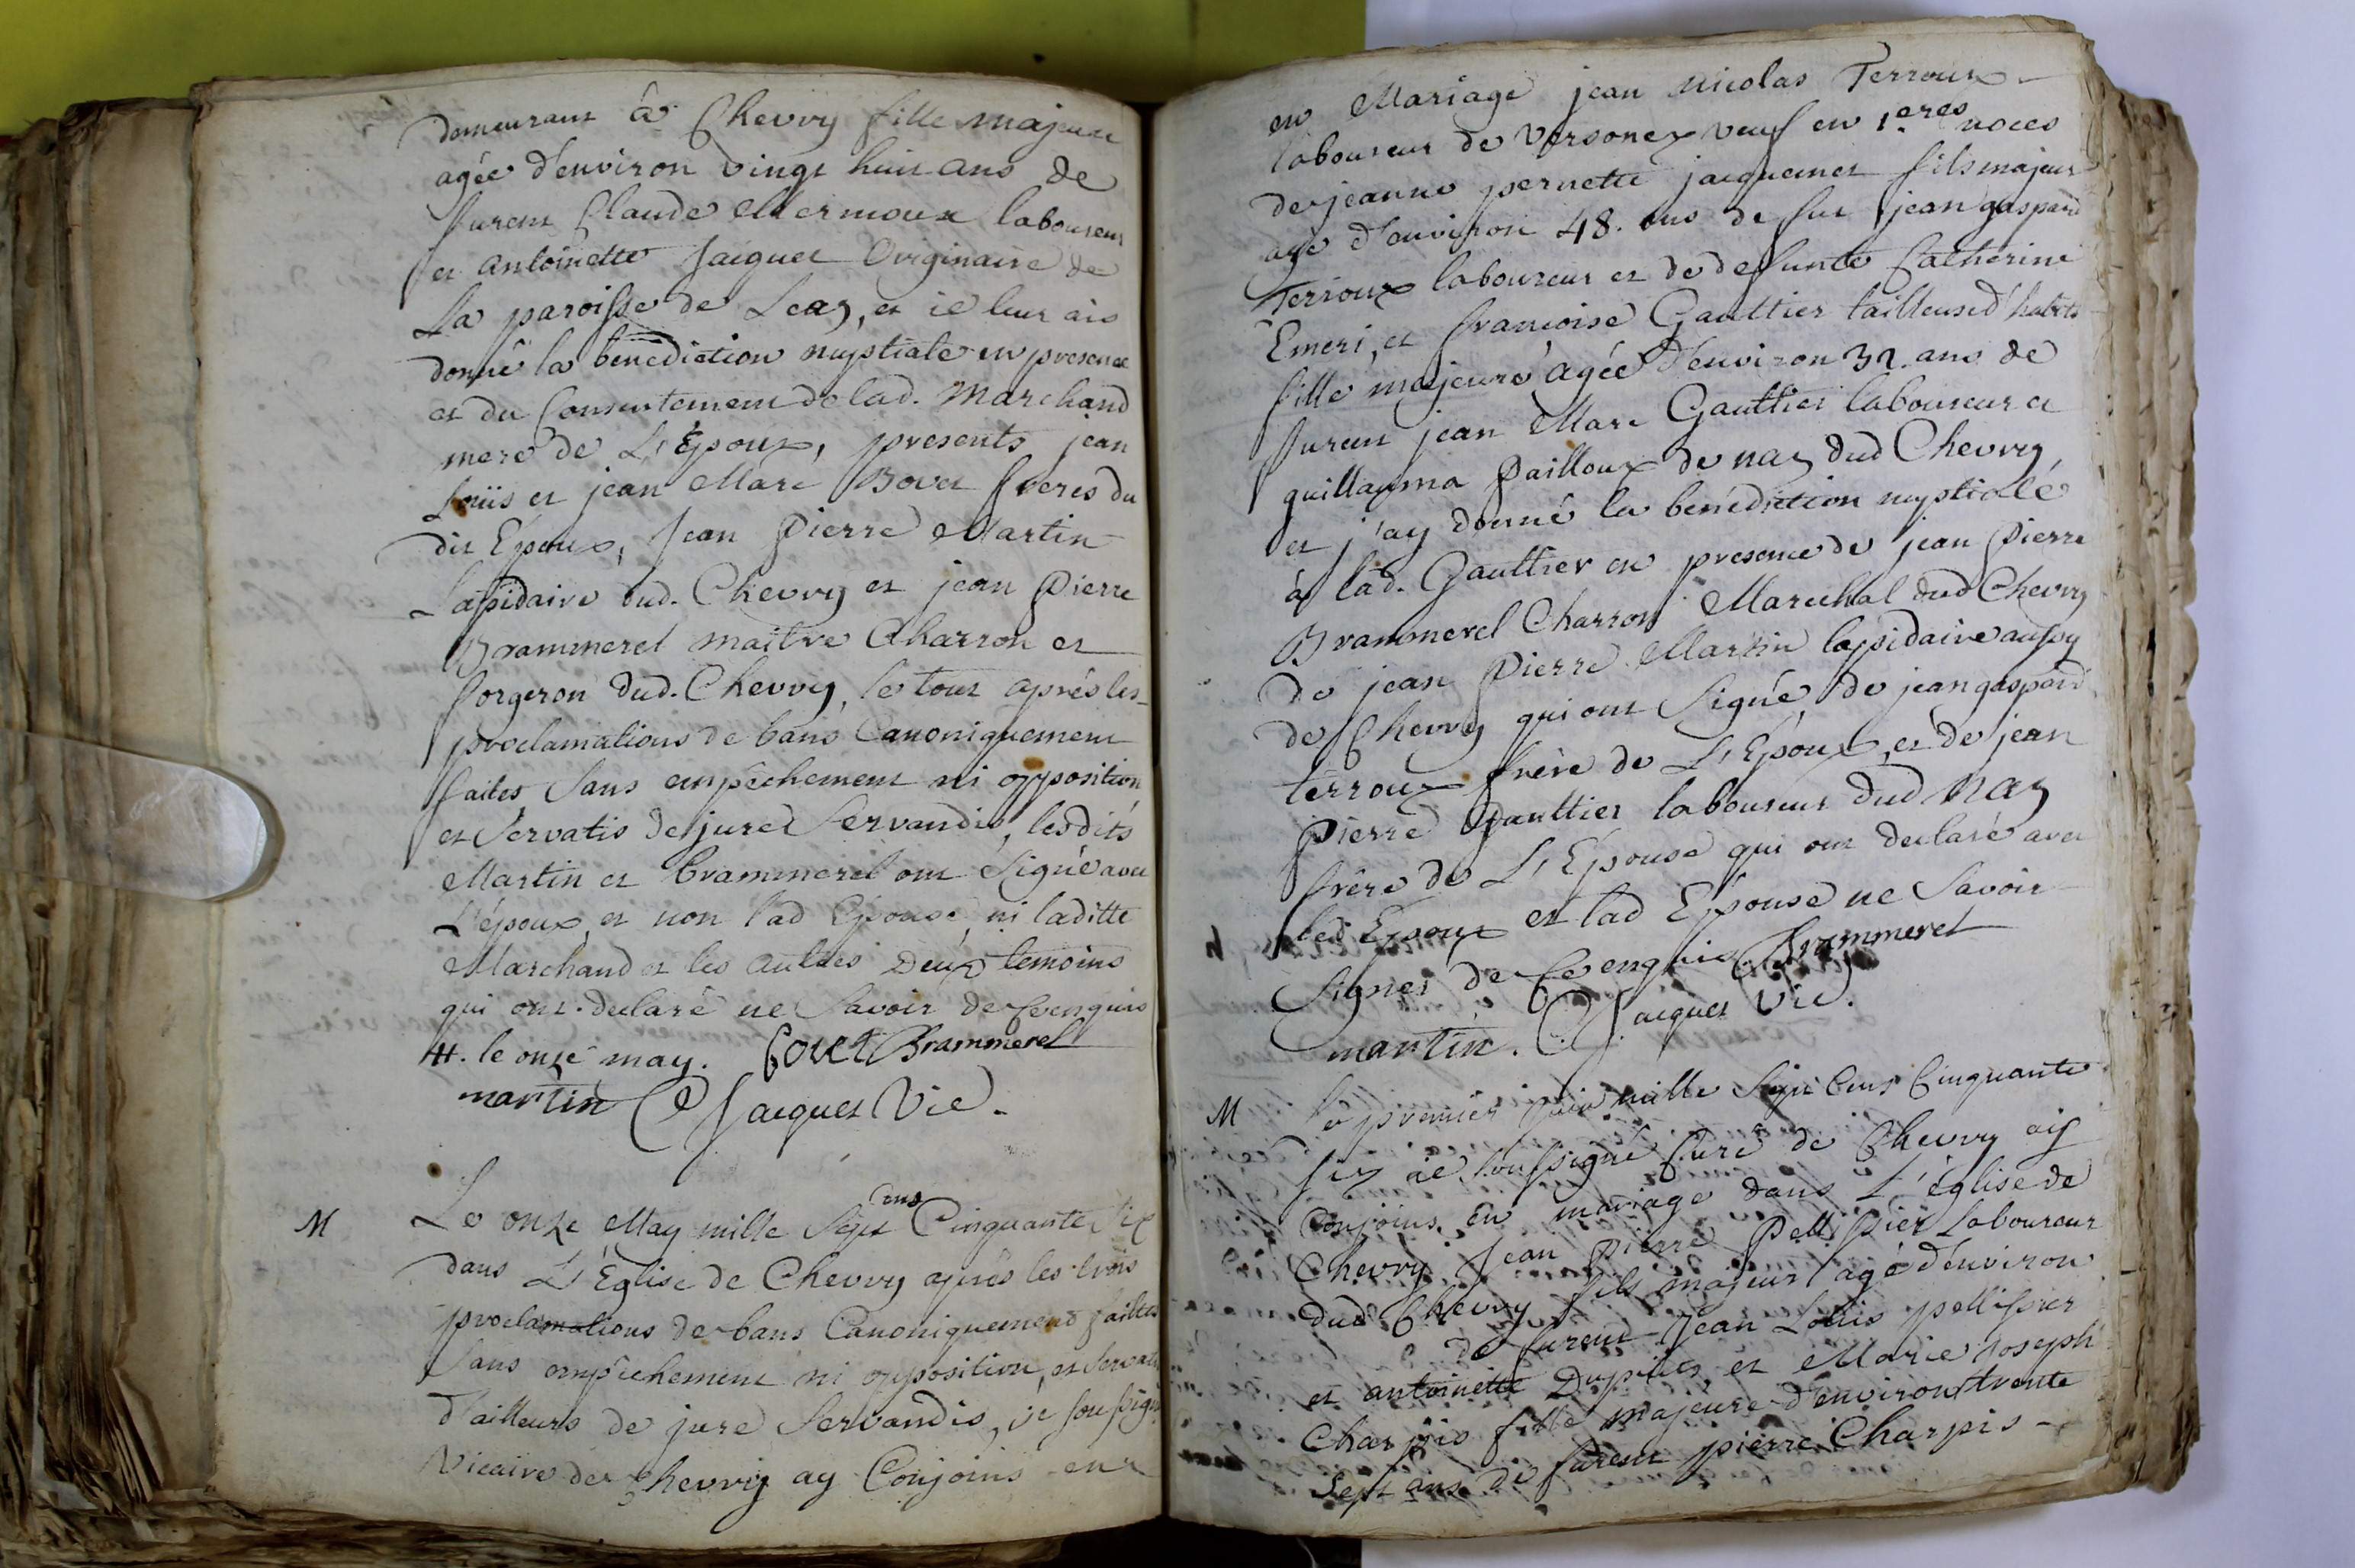 demeurant à Chevry fille majeure
agée d'environ vingt huit ans de
furent Claude Mermoux laboureur
et antoinette Jaiquet Originaire de
La paroisse de Leaz, et ie leur ais
donné la benediction nuptiale en presence
et du Consentement de lad. Marchand
mere de L'Epoux, presents jean
Loüis et jean Marc Bovet freres du
dit Epoux, Jean Pierre Martin
Lapidaire dud. Chevry et jean Pierre
Brammerel maitre Charron et
forgeron dud. Chevry, le tout après les
proclamations de bans Canoniquement
faites Sans empêchement ni opposition
et Servatis de jure Servandis, lesdits
Martin et brammerel ont Signé avec
L'époux, et non lad Epouse, ni laditte
Marchand et les autres Deux temoins
qui ont declaré ne Savoir de Ce enquis
#. le onze may. bovet Brammerel
martin Jacquet Vic.
M Le onze May mille Sept Cens Cinquante Six
dans L'Eglise de Chevry après les trois
proclamations de bans Canoniquement faittes
Sans empêchement ni opposition, et Servatis
d'ailleurs de jure Servandis, ie soussigné
Vicaire de Chevry ay Conjoins en
en Mariage jean nicolas Terroux
laboureur de Versonex veuf en 1.eres noces
de jeanne pernette jacquemet fils majeur
agé d'environ 48. ans de fut jean gaspard
Terroux laboureur et de defunte Catherine
Emeri, et francoise Gaultier tailleuse d'habits
fille majeure agée d'environ 32. ans de
furent jean Marc Gaultier laboureur et
guillauma Pailloux de naz dud Chevry,
et j'ay donné la benédiction nuptiale
à lad. Gaultier en presence de jean Pierre
Brammerel Charron Marechal dud Chevry
de jean Pierre Martin lapidaire aussy
de Chevry qui ont Signé, de jean gaspard
terroux frère de L'Epoux, et de jean
Pierre Gaultier laboureur dud Naz
frère de L'Epouse qui ont declaré avec
led Epoux et lad Epouse ne Savoir
Signer de Ce enquis Brammerel
martin. Jacquet Vic.
M le premier juin mille Sept Cens Cinquante
six ie soussigné Curé de Chevry ay
Conjoins en mariage dans L'église de
Chevry Jean Pierre Pellissier Laboureur
dud Chevry fils majeur agé d'environ
de furent Jean Loüis pellissier
et antoinette Dupuits, et Marie joseph
Charpis fille majeure d'environ trente
Sept ans de furent pierre Charpis